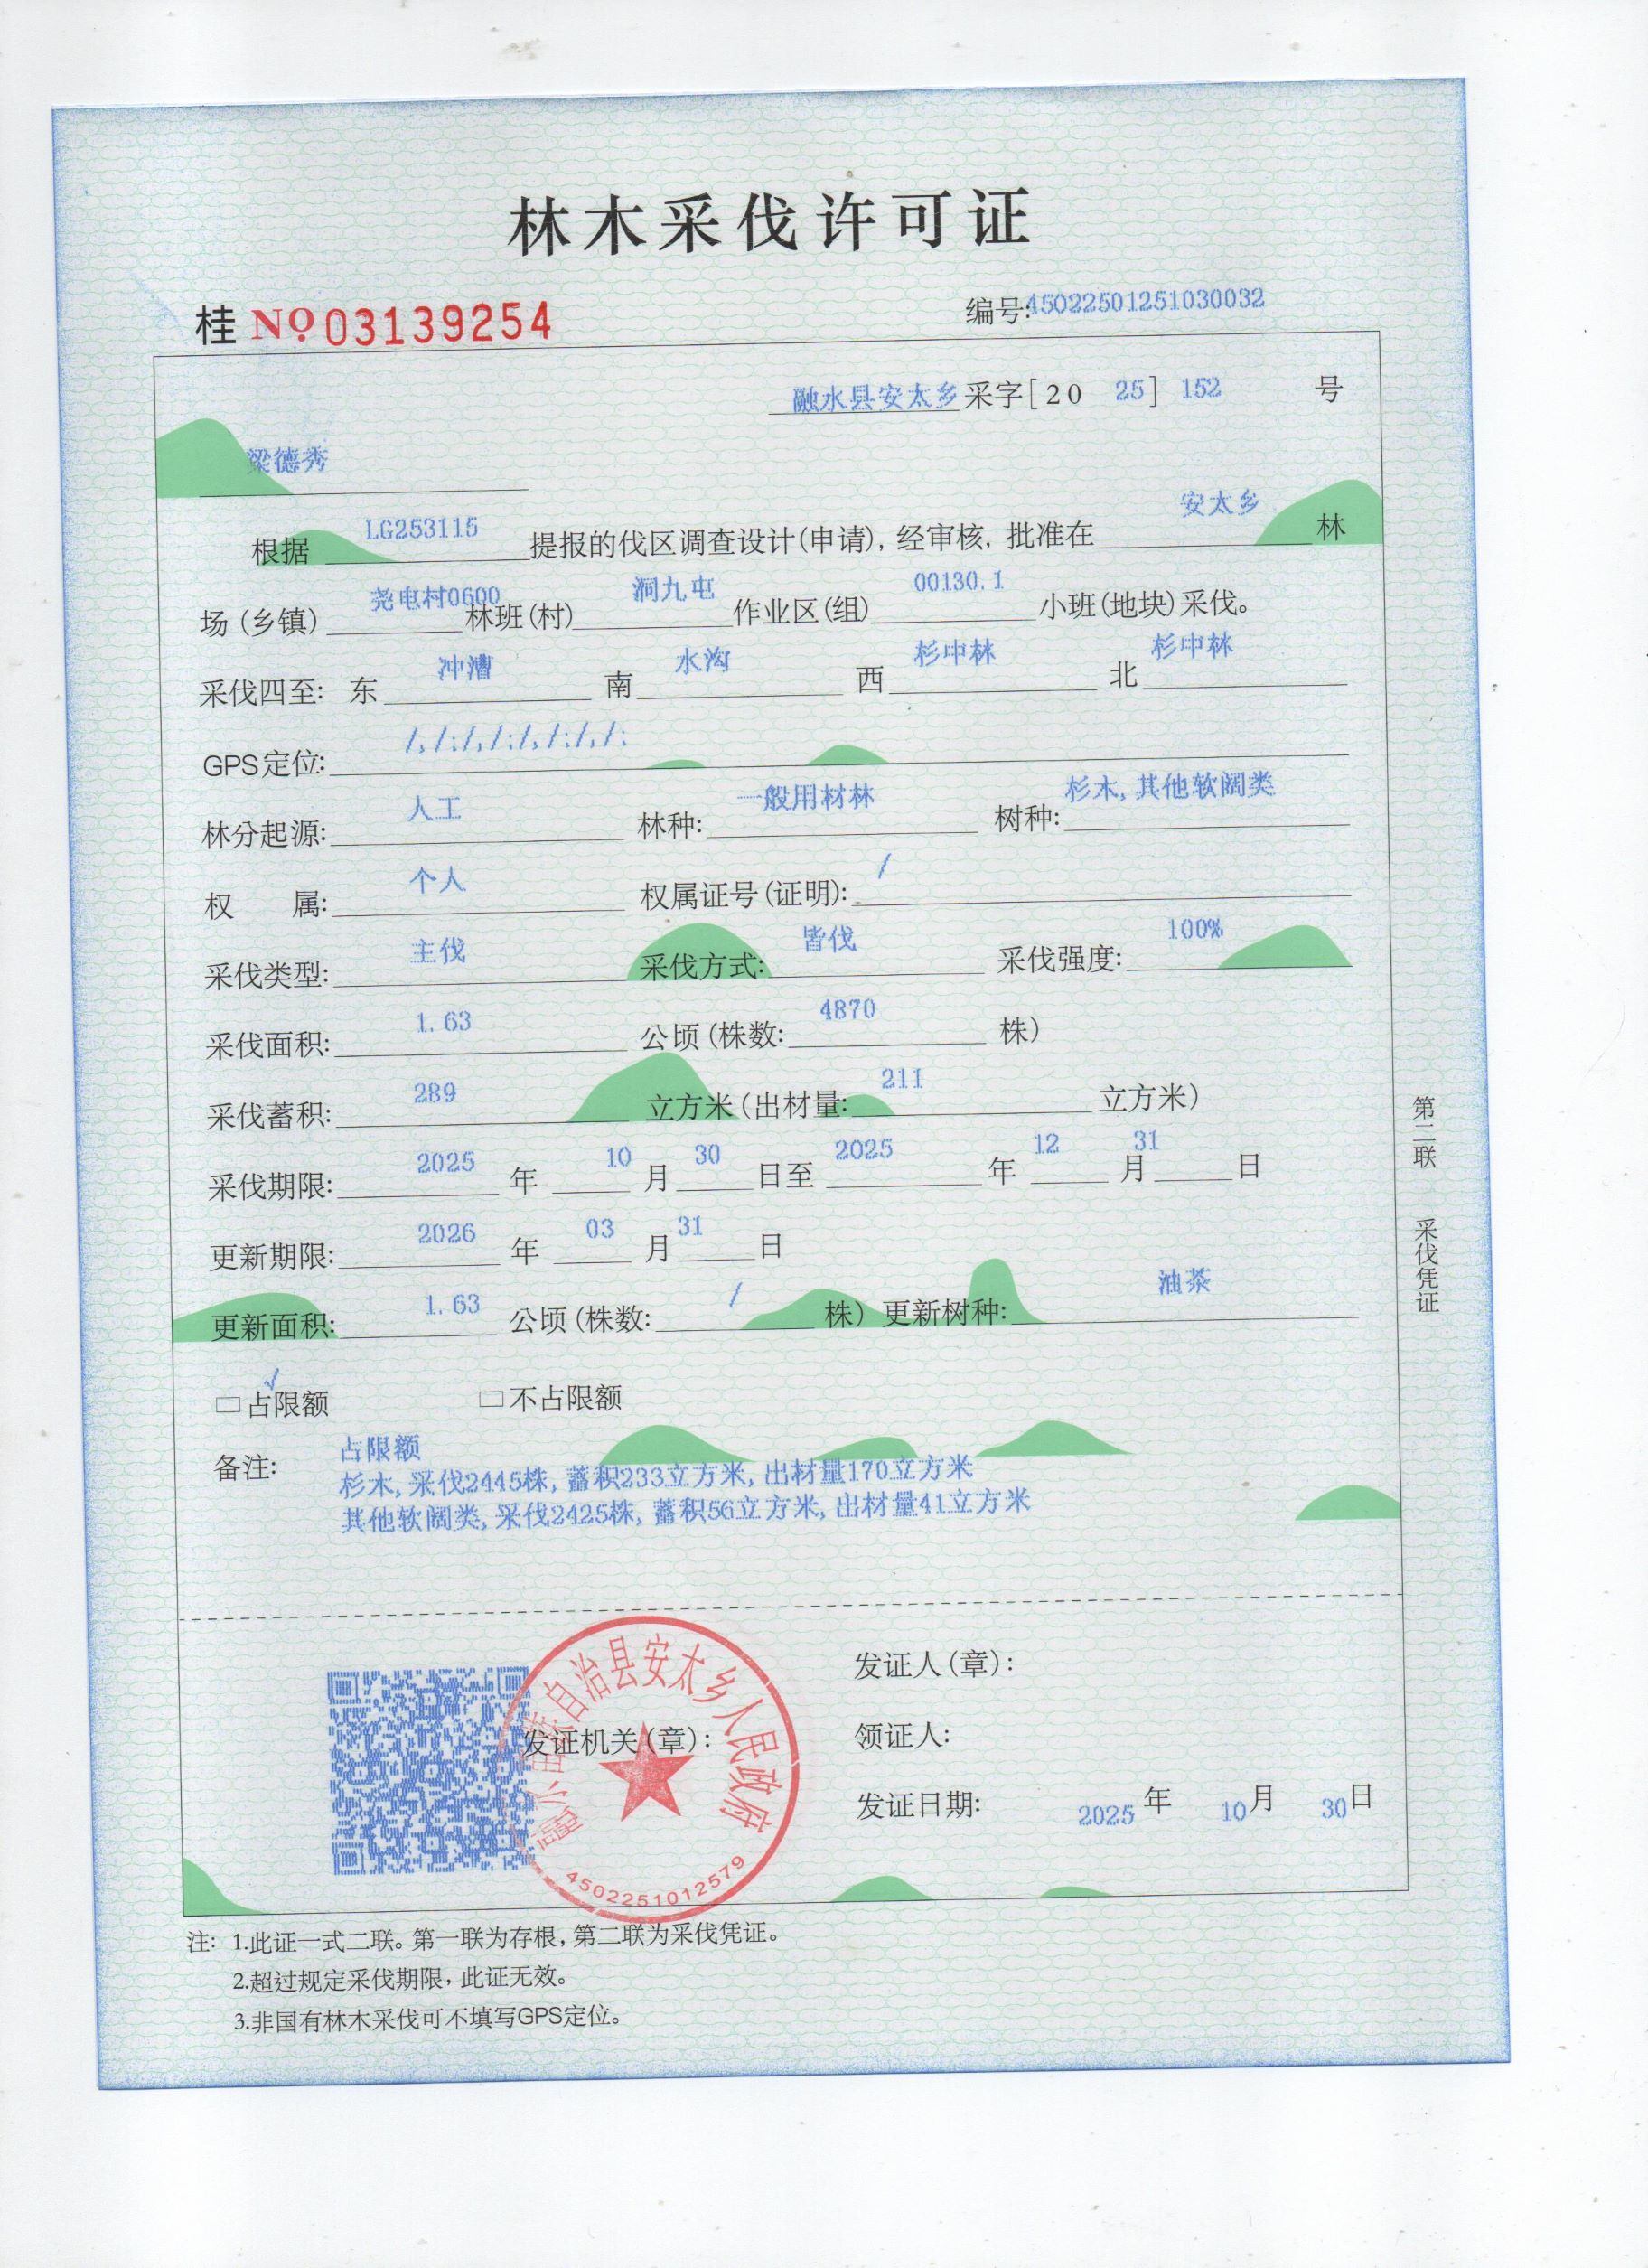 林木采伐许可证
桂 NO.03139254 编号:45022501251030032
融水县安太乡采字[2025]152号
梁德秀
根据 LG253115 提报的伐区调查设计(申请),经审核,批准在 安太乡 林
场(乡镇) 尧电村0600 林班(村) 洞九屯 作业区(组) 00130.1 小班(地块)采伐。
采伐四至: 东 冲漕 南 水沟 西 杉中林 北 杉中林
GPS定位: /,/;/,/;/,/;/,/;
林分起源: 人工 林种: 一般用材林 树种: 杉木,其他软阔类
权 属: 个人 权属证号(证明): /
采伐类型: 主伐 采伐方式: 皆伐 采伐强度: 100%
采伐面积: 1.63 公顷(株数: 4870 株)
采伐蓄积: 289 立方米(出材量: 211 立方米)
采伐期限: 2025 年 10 月 30 日至 2025 年 12 月 31 日
更新期限: 2026 年 03 月 31 日
更新面积: 1.63 公顷(株数: / 株) 更新树种: 油茶
□√占限额 □不占限额
备注: 占限额
杉木,采伐2445株,蓄积233立方米,出材量170立方米
其他软阔类,采伐2425株,蓄积56立方米,出材量41立方米
第二联 采伐凭证
发证人(章):
发证机关(章):
融水苗族自治县安太乡人民政府
4502251012579
领证人:
发证日期: 2025 年 10 月 30 日
注: 1.此证一式二联。第一联为存根,第二联为采伐凭证。
2.超过规定采伐期限,此证无效。
3.非国有林木采伐可不填写GPS定位。